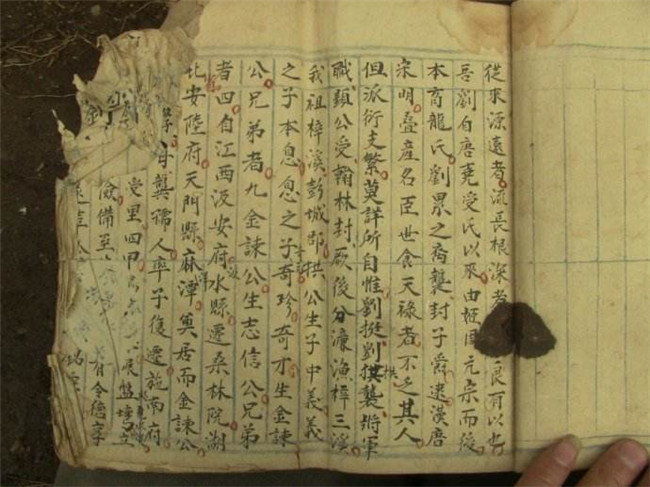 從來源遠者流長根深者良有以也
吾劉自唐堯受氏以來由國元宗而後
本商龍氏劉累之裔襲封子爵逮漢唐
宋明疊產名臣世食天祿者不乏其人
但派衍支繁莫詳所自惟劉挺劉拱襲將軍
職顯公受翰林封厥後分濂漁梓三溪
我祖梓溪彭城郡拱公生子中義義
之子本息息之子奇珍奇才生金諫
公兄弟者九金諫公生志信公兄弟
者四自江西汲安府水縣遷桑林院湖
北安陸府天門縣麻潭奠居而金諫公
母龔孺人率子復遷施南府
受里四甲立
儉備至有令德享